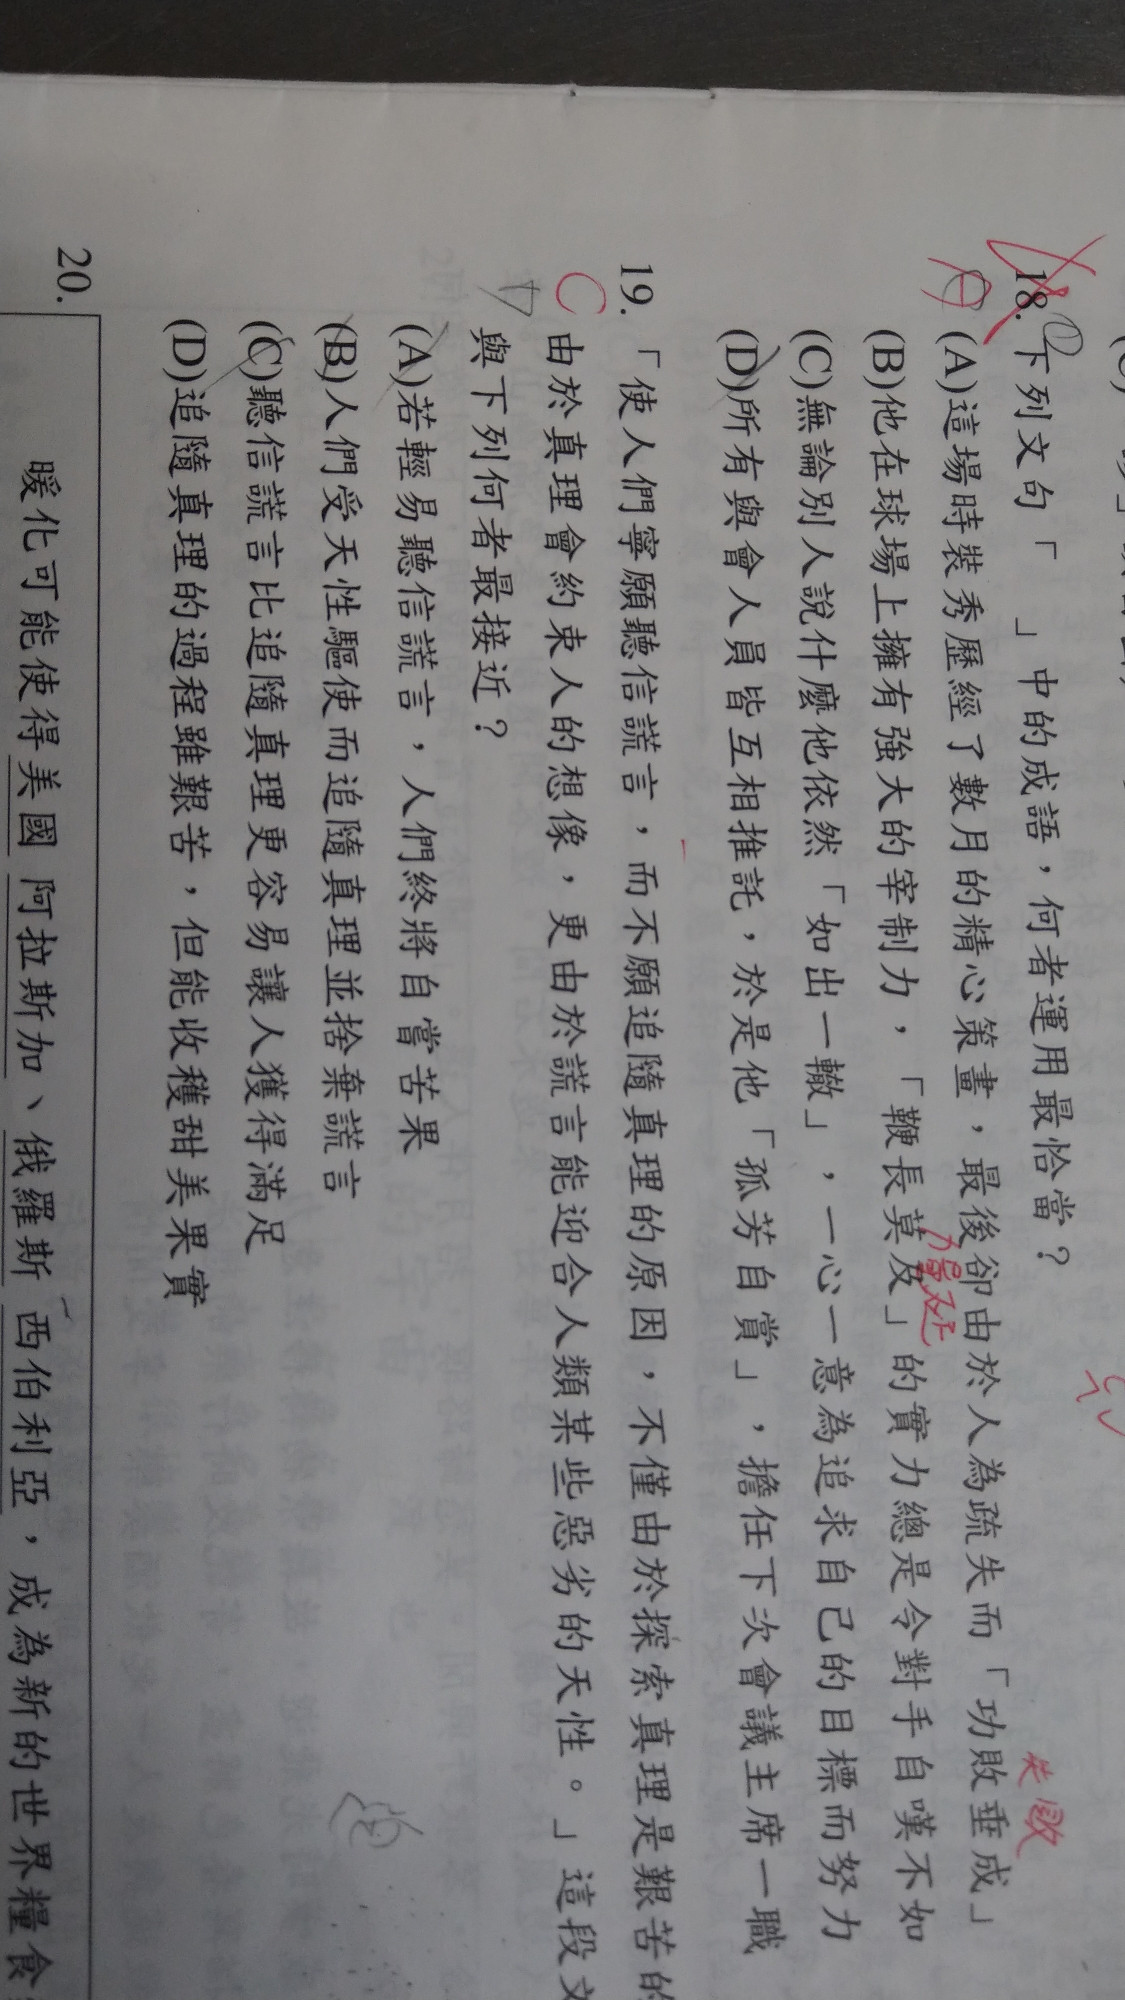 18. 下列文句「　」中的成語，何者運用最恰當？
(A)這場時裝秀歷經了數月的精心策畫，最後卻由於人為疏失而「功敗垂成」
失敗
(B)他在球場上擁有強大的宰制力，「鞭長莫及」的實力總是令對手自嘆不如
(C)無論別人說什麼他依然「如出一轍」，一心一意為追求自己的目標而努力
(D)所有與會人員皆互相推託，於是他「孤芳自賞」，擔任下次會議主席一職
19. 「使人們寧願聽信謊言，而不願追隨真理的原因，不僅由於探索真理是艱苦的
C
由於真理會約束人的想像，更由於謊言能迎合人類某些惡劣的天性。」這段文
與下列何者最接近？
(A)若輕易聽信謊言，人們終將自嘗苦果
(B)人們受天性驅使而追隨真理並捨棄謊言
(C)聽信謊言比追隨真理更容易讓人獲得滿足
(D)追隨真理的過程雖艱苦，但能收穫甜美果實
20.
暖化可能使得美國 阿拉斯加、俄羅斯 西伯利亞，成為新的世界糧食